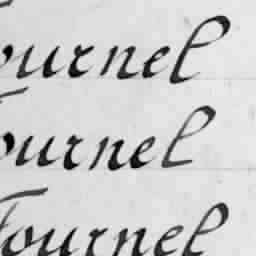 ournel
ournel
Fournel